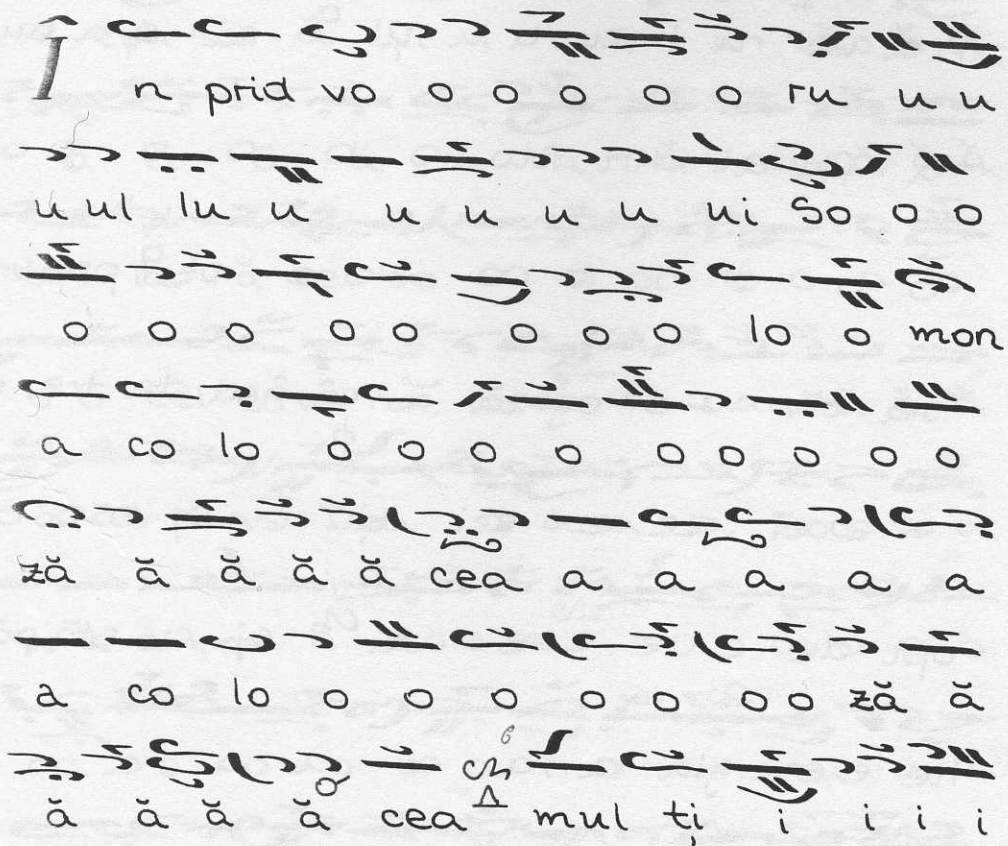 În prid vo o o o o o ru u u
u ul lu u u u u u ui So o o
o o o o o o o o lo o mon
a co lo o o o o o o o o o
ză ă ă ă ă cea a a a a a
a co lo o o o o o o ză ă
ă ă ă ă cea Δ mul ți i i i i